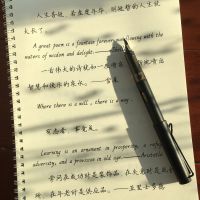 人生苦短，若虚度年华，则短暂的人生就
太长了。
A great poem is a fountain forever overflowing with the
waters of wisdom and delight.
一首伟大的诗犹如一座喷泉
智慧和愉快的泉水。 雪莱
Where there is a will, there is a way.
有志者，事竟成。
Learning is an ornament in prosperity, a refuge in
adversity, and a provision in old age. Aristotle
学问在成功时是装饰品，在失意时是庇护
所，在年老时是供应品。 亚里士多德